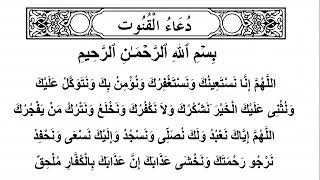 دُعَاءُ الْقُنُوت
بِسْمِ اللهِ الرَّحْمَـٰنِ الرَّحِيمِ
اَللَّهُمَّ إِنَّا نَسْتَعِينُكَ وَنَسْتَغْفِرُكَ وَنُؤْمِنُ بِكَ وَنَتَوَكَّلُ عَلَيْكَ
وَنُثْنِى عَلَيْكَ الْخَيْرَ نَشْكُرُكَ وَلَا نَكْفُرُكَ وَنَخْلَعُ وَنَتْرُكُ مَنْ يَفْجُرُكَ
اَللَّهُمَّ إِيَّاكَ نَعْبُدُ وَلَكَ نُصَلِّى وَنَسْجُدُ وَإِلَيْكَ نَسْعَى وَنَحْفِدُ
نَرْجُو رَحْمَتَكَ وَنَخْشَى عَذَابَكَ إِنَّ عَذَابَكَ بِالْكُفَّارِ مُلْحِقٌ